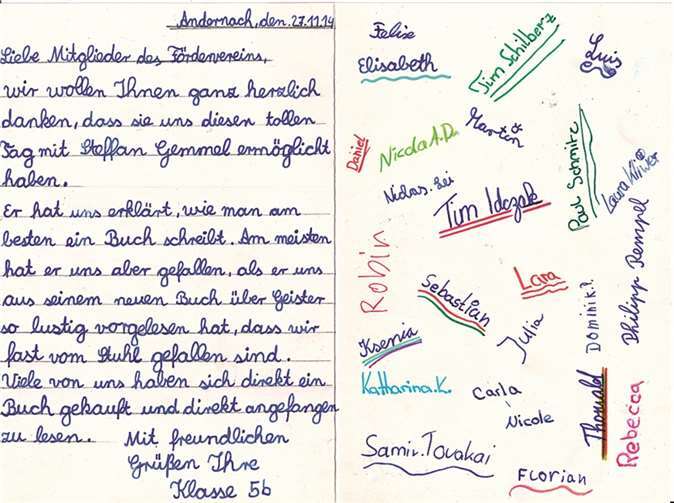 Andernach, den 27.11.14
Liebe Mitglieder des Fördervereins,
wir wollen Ihnen ganz herzlich
danken, dass sie uns diesen tollen
Tag mit Steffan Gemmel ermöglicht
haben.
Er hat uns erklärt, wie man am
besten ein Buch schreibt. Am meisten
hat er uns aber gefallen, als er uns
aus seinem neuen Buch über Geister
so lustig vorgelesen hat, dass wir
fast vom Stuhl gefallen sind.
Viele von uns haben sich direkt ein
Buch gekauft und direkt angefangen
zu lesen. Mit freundlichen
Grüßen Ihre
Klasse 5b
Felix
Elisabeth
Tim Schilberz
Luis
Daniel
Nicola A.D.
Martin
Paul Schmitz
Laura
Tim Idczak
Robin
Sebastian
Lara
Julia
Dominik.P.
Philipp Rempel
Ksenia
Katharina.K.
Carla
Nicole
Rebecca
Samir.
Florian